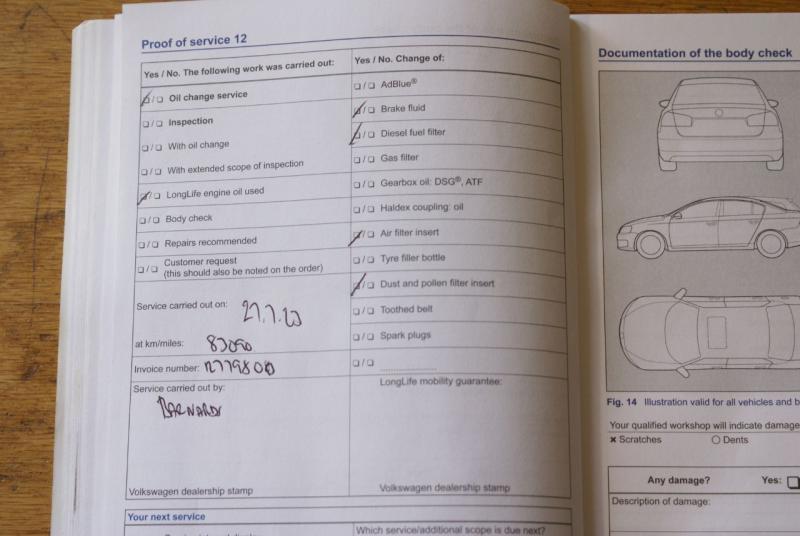 Proof of service 12
Yes / No. The following work was carried out:
Oil change service
Inspection
With oil change
With extended scope of inspection
LongLife engine oil used
Body check
Repairs recommended
Customer request
(this should also be noted on the order)
Service carried out on:
at km/miles:
Invoice number:
Service carried out by:
BARNARDS
Volkswagen dealership stamp
Yes / No. Change of:
AdBlue®
Brake fluid
Diesel fuel filter
Gas filter
Gearbox oil: DSG®, ATF
Haldex coupling: oil
Air filter insert
Tyre filler bottle
Dust and pollen filter insert
Toothed belt
Spark plugs
LongLife mobility guarantee:
Volkswagen dealership stamp
Your next service
Which service/additional scope is due next?
Documentation of the body check
Fig. 14 Illustration valid for all vehicles and b
Your qualified workshop will indicate damage
× Scratches O Dents
Any damage? Yes:
Description of damage: